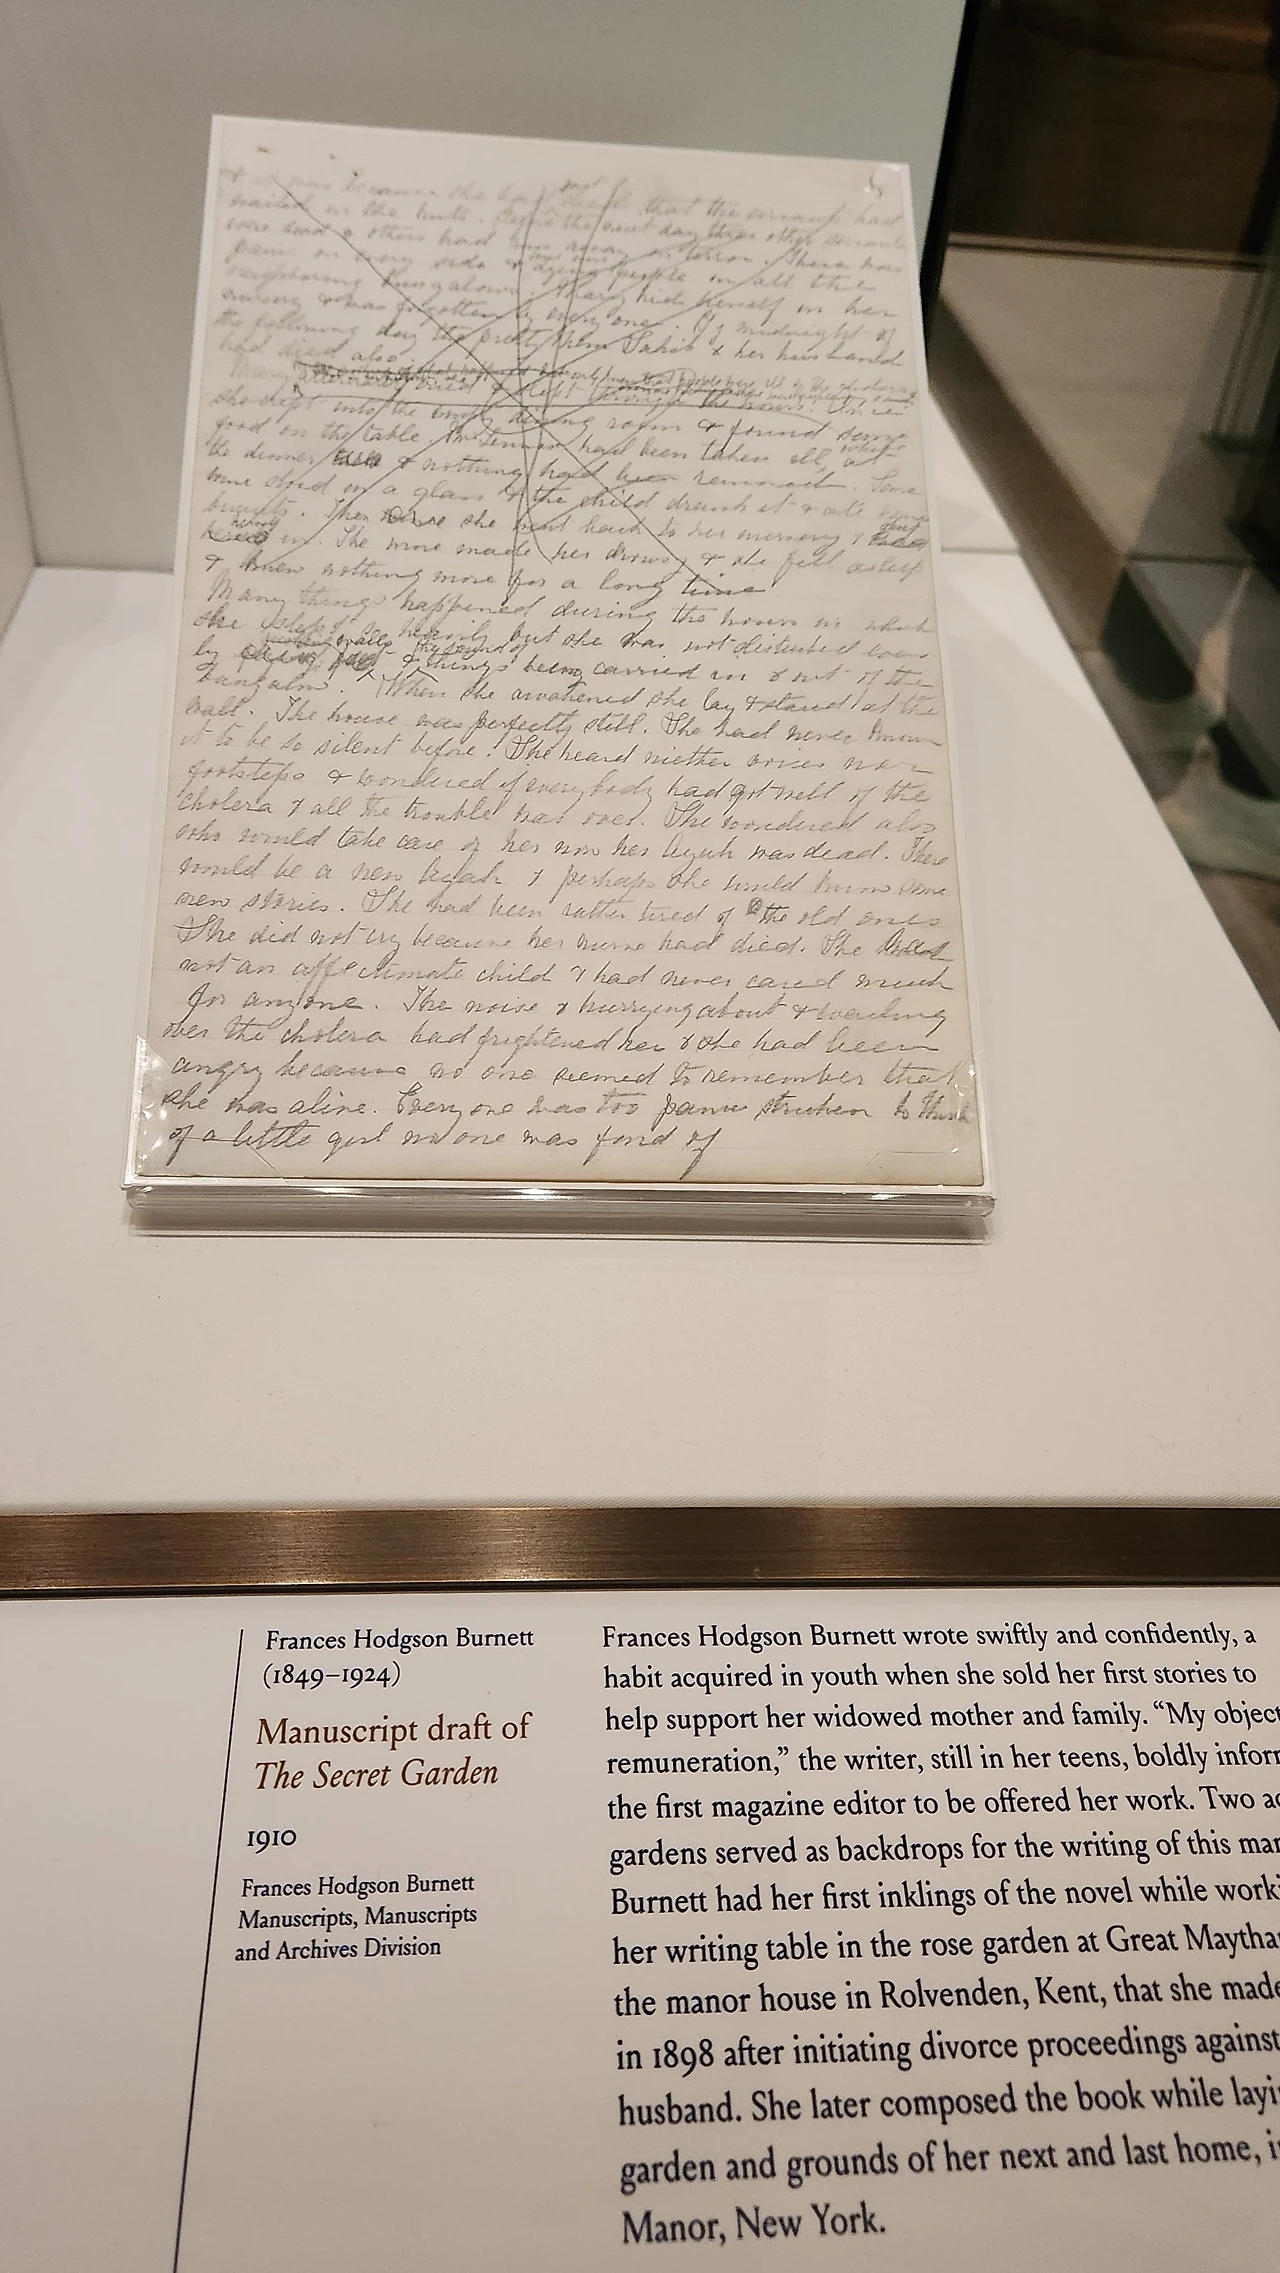 & it was because she had just died that the servants had
wailed in the huts. Before the next day three other servants
were dead & others had run away in terror. There was
panic on every side & dying people in all the
neighboring bungalows. Mary hid herself in her
nursery & was forgotten by every one. By midnight of
the following day the pretty Mem Sahib & her husband
had died also.
Mary alternately cried & slept through the hours. Once
she crept into the empty dining room & found some
food on the table. had been taken ill, when at
the dinner & nothing had been removed. Some
wine stood in a glass & the child drank it & ate some
biscuits. Then she went back to her nursery & shut
herself in. The wine made her drowsy & she fell asleep
& knew nothing more for a long time
Many things happened during the hours in which
she slept so heavily but she was not disturbed even
by wails & the sound of things being carried in & out of the
bungalow. When she awakened she lay & stared at the
wall. The house was perfectly still. She had never known
it to be so silent before. She heard niether voices nor
footsteps & wondered if everybody had got well of the
cholera & all the trouble was over. She wondered also
who would take care of her now her Ayah was dead. There
would be a new Ayah & perhaps she would know some
new stories. She had been rather tired of the old ones
She did not cry because her nurse had died. She was
not an affectionate child & had never cared much
for any one. The noise & hurrying about & wailing
over the cholera had frightened her & she had been
angry because no one seemed to remember that
she was alive. Every one was too panic stricken to think
of a little girl no one was fond of
Frances Hodgson Burnett
(1849–1924)
Manuscript draft of
The Secret Garden
1910
Frances Hodgson Burnett
Manuscripts, Manuscripts
and Archives Division
Frances Hodgson Burnett wrote swiftly and confidently, a
habit acquired in youth when she sold her first stories to
help support her widowed mother and family. “My object
remuneration,” the writer, still in her teens, boldly infor
the first magazine editor to be offered her work. Two a
gardens served as backdrops for the writing of this ma
Burnett had her first inklings of the novel while worki
her writing table in the rose garden at Great Maytha
the manor house in Rolvenden, Kent, that she made
in 1898 after initiating divorce proceedings against
husband. She later composed the book while layi
garden and grounds of her next and last home, i
Manor, New York.